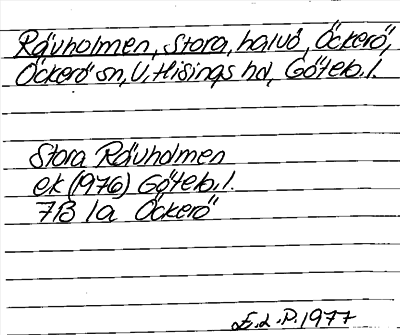 Rävholmen, Stora, halvö, Öckerö,
Öckerö sn, V. Hisings hd, Göteb. l.
Stora Rävholmen
ek (1976) Göteb. l.
7B 1a Öckerö
E. L. P. 1977